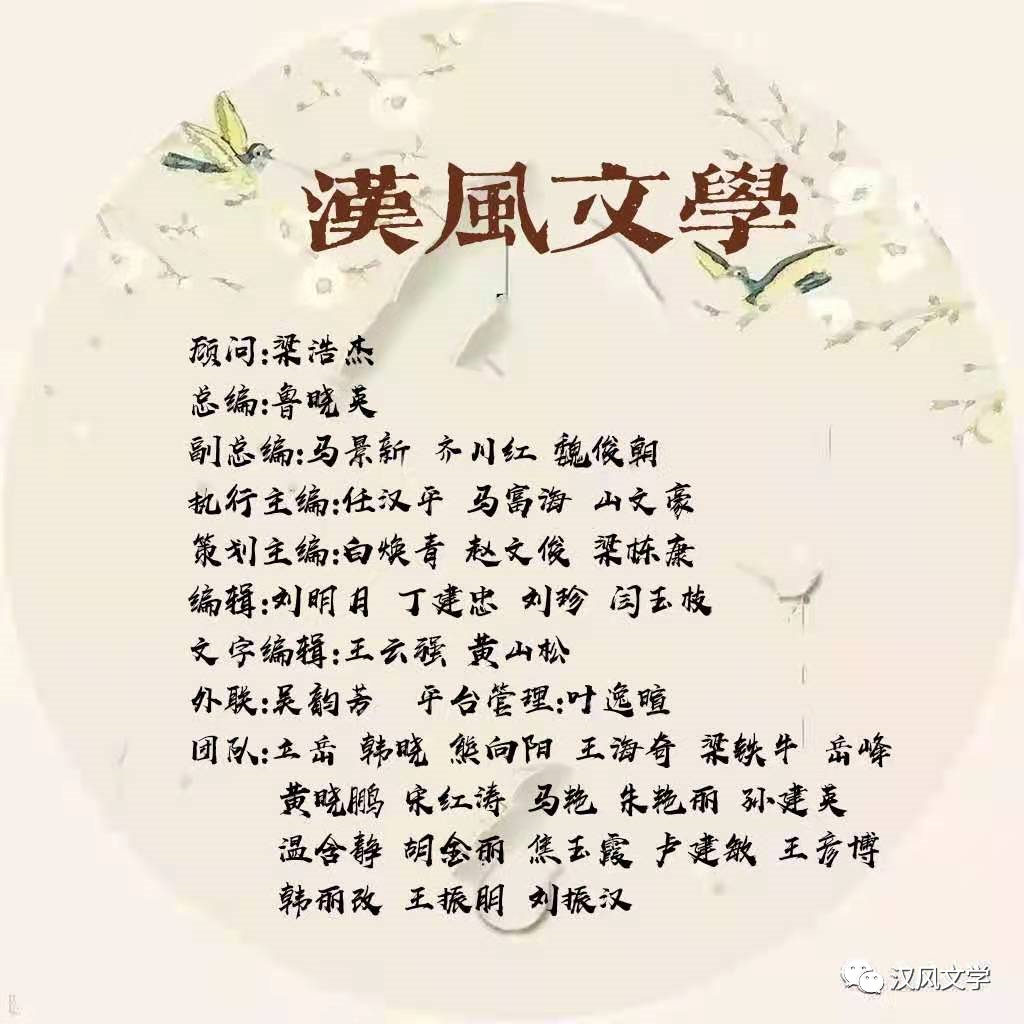 漢風文學
顾问:梁浩杰
总编:鲁晓英
副总编:马景新 齐川红 魏俊朝
执行主编:任汉平 马富海 山文豪
策划主编:白焕青 赵文俊 梁栋康
编辑:刘明月 丁建忠 刘珍 闫玉枝
文字编辑:王云强 黄山松
外联:吴韵芳 平台管理:叶逸暄
团队:立岳 韩晓 熊向阳 王海奇 梁铁牛 岳峰
黄晓鹏 宋红涛 马艳 朱艳丽 孙建英
温含静 胡金丽 焦玉霞 卢建敏 王彦博
韩丽改 王振明 刘振汉
汉风文学